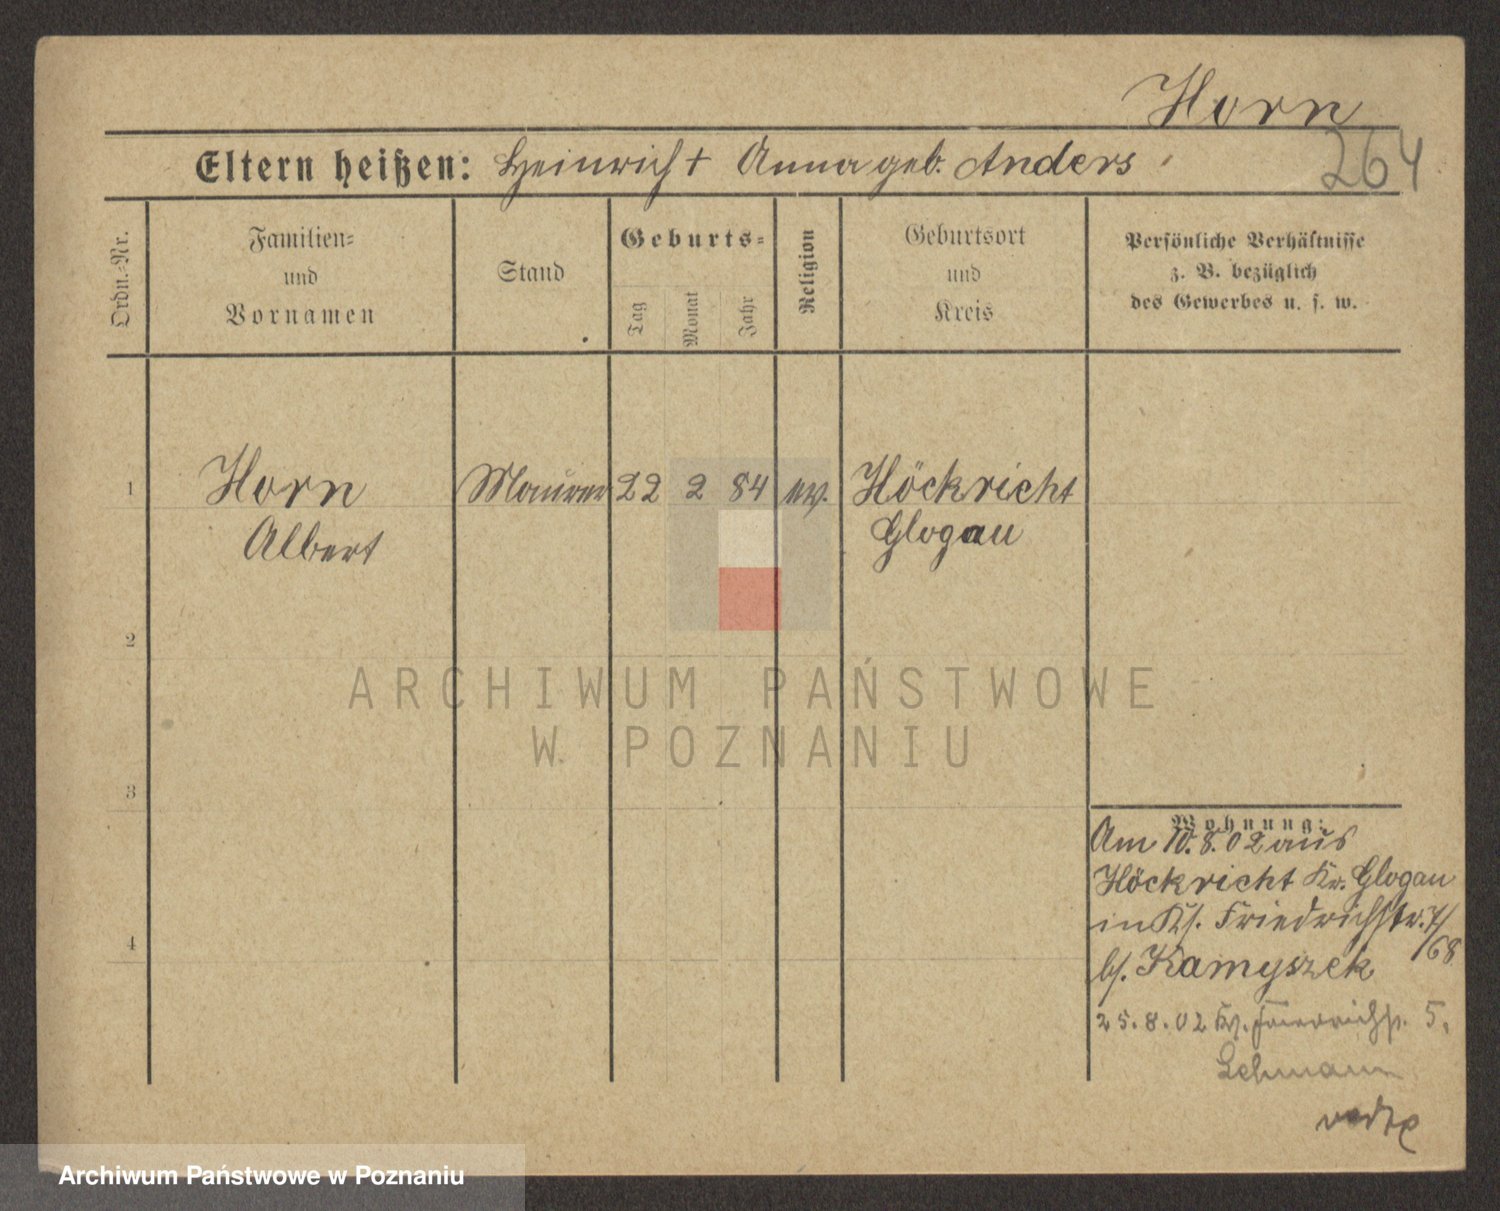 Horn
264
Eltern heißen: Heinrich † Anna geb. Anders
Ordn.-Nr.
Familien-
und
Vornamen
Stand
Geburts-
Tag
Monat
Jahr
Religion
Geburtsort
und
Kreis
Persönliche Verhältnisse
z. B. bezüglich
des Gewerbes u. s. w.
1 Horn Maurer 22 2 84 ev. Höckricht
Albert Glogau
2
3
4
ARCHIWUM PAŃSTWOWE
W POZNANIU
Wohnung:
Am 10.8.02 aus
Höckricht Kr. Glogau
in Friedrichstr. 7/
68
bs. Kamyszek
25.8.02 Friedrichstr. 5.
Lehmann
Archiwum Państwowe w Poznaniu